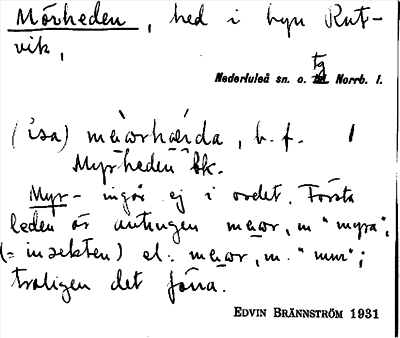 Mörheden, hed i byn Rut-
vik,
Nederluleå sn. o. tg Norrb. l.
(isa) meaorhæida, b. f. 1
Myrheden bk.
Myr- ingår ej i ordet. Första
leden är antingen meaor, m "myra",
(= insekten) el. meaor, m. "mur";
troligen det förra.
EDVIN BRÄNNSTRÖM 1931